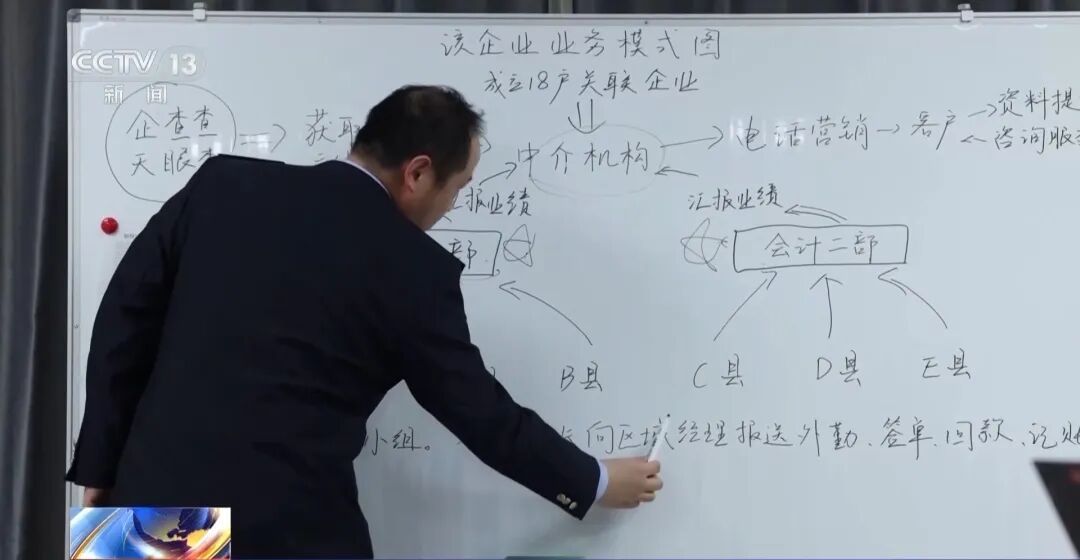 CCTV 13
新闻
该企业业务模式图
成立18户关联企业
企查查
天眼
获取
中介机构
电话营销
客户
资料提
咨询服
汇报业绩
报业绩
部
会计二部
B县
C县
D县
E县
小组。
向区域经理报送外勤、签单、回款、记账